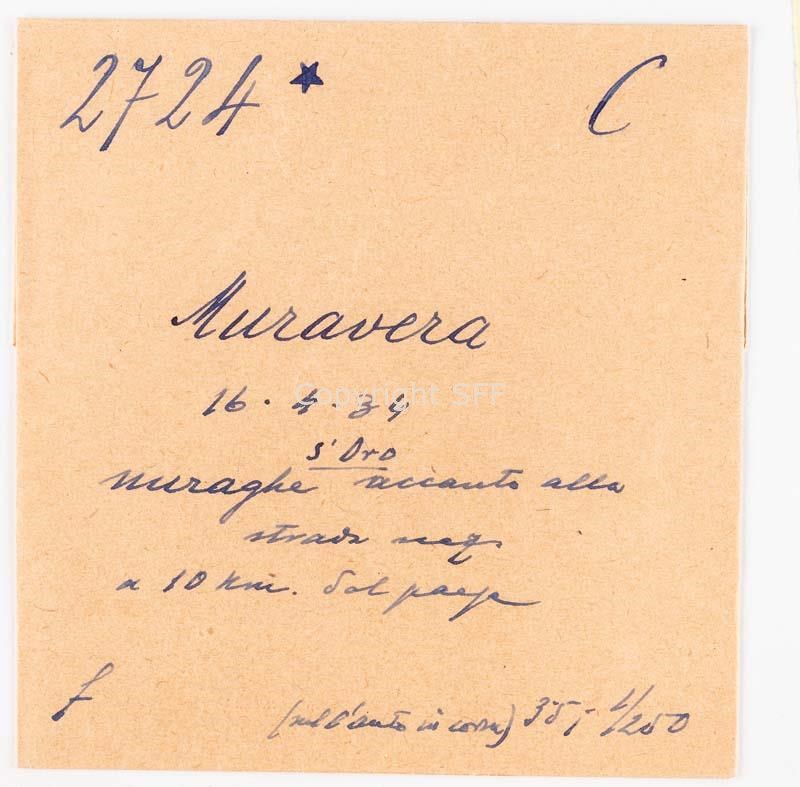 2724 ★ C
Muravera
16.4.34
S'Oro
nuraghe accanto alla
strada naz.
a 10 km. dal paese
f
(nell'auto in corsa) 35,- 1/250
Copyright SFF